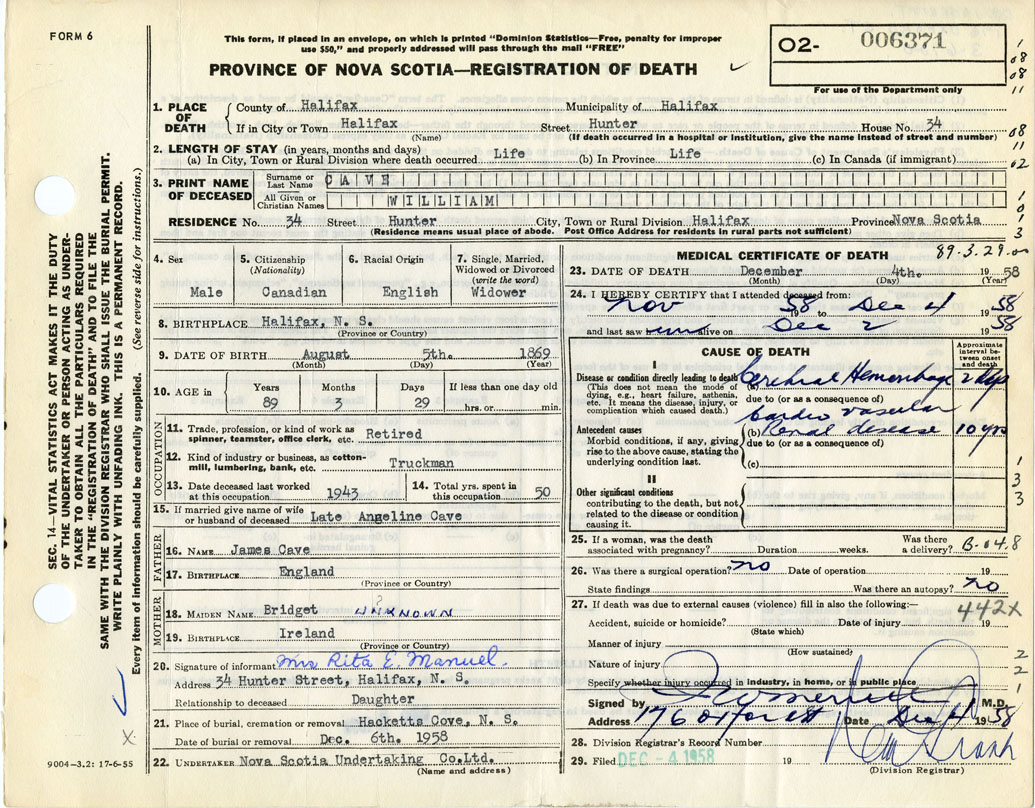 FORM 6
This form, if placed in an envelope, on which is printed "Dominion Statistics—Free, penalty for improper
use $50," and properly addressed will pass through the mail "FREE"
PROVINCE OF NOVA SCOTIA—REGISTRATION OF DEATH
02- 006371
For use of the Department only
1. PLACE OF DEATH
County of Halifax Municipality of Halifax
If in City or Town Halifax Street Hunter House No. 34
(Name) (If death occurred in a hospital or institution, give the name instead of street and number)
2. LENGTH OF STAY (in years, months and days)
(a) In City, Town or Rural Division where death occurred Life (b) In Province Life (c) In Canada (if immigrant)
3. PRINT NAME OF DECEASED
Surname or Last Name CAVE
All Given or Christian Names WILLIAM
RESIDENCE No. 34 Street Hunter City, Town or Rural Division Halifax Province Nova Scotia
(Residence means usual place of abode. Post Office Address for residents in rural parts not sufficient)
4. Sex
Male
5. Citizenship (Nationality)
Canadian
6. Racial Origin
English
7. Single, Married, Widowed or Divorced (write the word)
Widower
8. BIRTHPLACE Halifax, N. S.
(Province or Country)
9. DATE OF BIRTH August 5th. 1869
(Month) (Day) (Year)
10. AGE in Years Months Days If less than one day old
89 3 29 hrs. or min.
OCCUPATION
11. Trade, profession, or kind of work as
spinner, teamster, office clerk, etc. Retired
12. Kind of industry or business, as cotton-
mill, lumbering, bank, etc. Truckman
13. Date deceased last worked
at this occupation 1943
14. Total yrs. spent in
this occupation 50
15. If married give name of wife
or husband of deceased Late Angeline Cave
FATHER
16. NAME James Cave
17. BIRTHPLACE England
(Province or Country)
MOTHER
18. MAIDEN NAME Bridget ? UNKNOWN
19. BIRTHPLACE Ireland
(Province or Country)
20. Signature of informant Mrs Rita E. Manuel.
Address 34 Hunter Street, Halifax, N. S.
Relationship to deceased Daughter
21. Place of burial, cremation or removal Hacketts Cove, N. S.
Date of burial or removal Dec. 6th. 1958
22. UNDERTAKER Nova Scotia Undertaking Co.Ltd.
(Name and address)
MEDICAL CERTIFICATE OF DEATH
89.3.29.00
23. DATE OF DEATH December 4th. 1958
(Month) (Day) (Year)
24. I HEREBY CERTIFY that I attended deceased from:
Nov 1958 to Dec 4 1958
and last saw alive on Dec 2 1958
CAUSE OF DEATH
Approximate interval between onset and death
I
Disease or condition directly leading to death
(This does not mean the mode of
dying, e.g., heart failure, asthenia,
etc. It means the disease, injury, or
complication which caused death.)
(a) Cerebral Hemorrhage 2 dys
due to (or as a consequence of)
Cardio vascular
Antecedent causes
Morbid conditions, if any, giving
rise to the above cause, stating the
underlying condition last.
(b) Renal disease 10 yrs
due to (or as a consequence of)
(c)
II
Other significant conditions
contributing to the death, but not
related to the disease or condition
causing it.
25. If a woman, was the death
associated with pregnancy? Duration weeks.
Was there
a delivery? B-04.8
26. Was there a surgical operation? no Date of operation 19
State findings Was there an autopsy? no
27. If death was due to external causes (violence) fill in also the following:— 442X
Accident, suicide or homicide? Date of injury 19
(State which)
Manner of injury
(How sustained)
Nature of injury
Specify whether injury occurred in industry, in home, or in public place
Signed by M.D.
Address 176 Oxford St Date Dec 4 1958
28. Division Registrar's Record Number
29. Filed DEC -4 1958 19
(Division Registrar)
SEC. 14—VITAL STATISTICS ACT MAKES IT THE DUTY
OF THE UNDERTAKER OR PERSON ACTING AS UNDER-
TAKER TO OBTAIN ALL THE PARTICULARS REQUIRED
IN THE "REGISTRATION OF DEATH" AND TO FILE THE
SAME WITH THE DIVISION REGISTRAR WHO SHALL ISSUE THE BURIAL PERMIT.
WRITE PLAINLY WITH UNFADING INK. THIS IS A PERMANENT RECORD.
Every item of information should be carefully supplied. (See reverse side for instructions.)
X
9004-3.2: 17-6-55
1
08
08
11
08
11
02
1
0
1
3
1
3
3
2
2
1